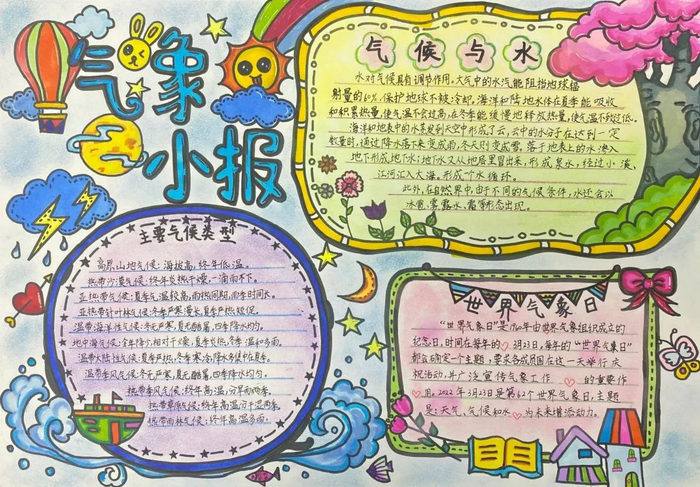 气象
小报
气候与水
水对气候具有调节作用。大气中的水汽能阻挡地球辐
射量的60%,保护地球不被冷却。海洋和陆地水体在夏季能吸收
和积累热量,使气温不会过高;在冬季能缓慢地释放热量,使气温不致过低。
海洋和地表中的水蒸发到天空中形成了云,云中的水分子在达到一定
数量时,通过降水落下来变成雨,冬天则变成雪。落于地表上的水渗入
地下形成地下水;地下水又从地层里冒出来,形成泉水,经过小溪、
江河汇入大海。形成个水循环。
此外,在自然界中,由于不同的气候条件,水还会以
冰雹、雾、露水、霜等形态出现。
主要气候类型
高原山地气候:海拔高,终年低温。
热带沙漠气候:终年炎热干燥,一滴雨不下。
亚热带气候:夏季气温较高,雨热同期,雨季时间长。
亚热带针叶林气候:冬季严寒漫长,夏季炎热短促。
温带海洋性气候:冬无严寒,夏无酷暑,四季降水均匀。
地中海气候:相对干燥,夏季炎热干燥,冬季温和多雨。
温带大陆性气候:夏季炎热,冬季寒冷,降水多集中在夏季。
温带季风气候:冬无严寒,夏无酷暑,四季降水均匀。
热带季风气候:终年高温,分旱雨两季。
热带草原气候:终年高温,分干湿两季。
热带雨林气候:终年高温多雨。
世界气象日
“世界气象日”是1960年由世界气象组织成立的
纪念日,时间在每年的3月23日,每年的“世界气象日”
都会确定一个主题,要求各成员国在这一天举行庆
祝活动,并广泛宣传气象工作的重要作
用。2022年3月23日是第62个世界气象日,主题
是:天气、气候和水为未来增添动力。